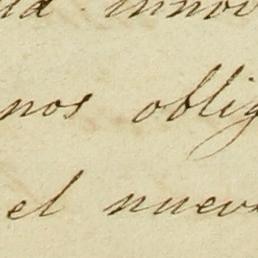 innov
nos oblig
el nuevo